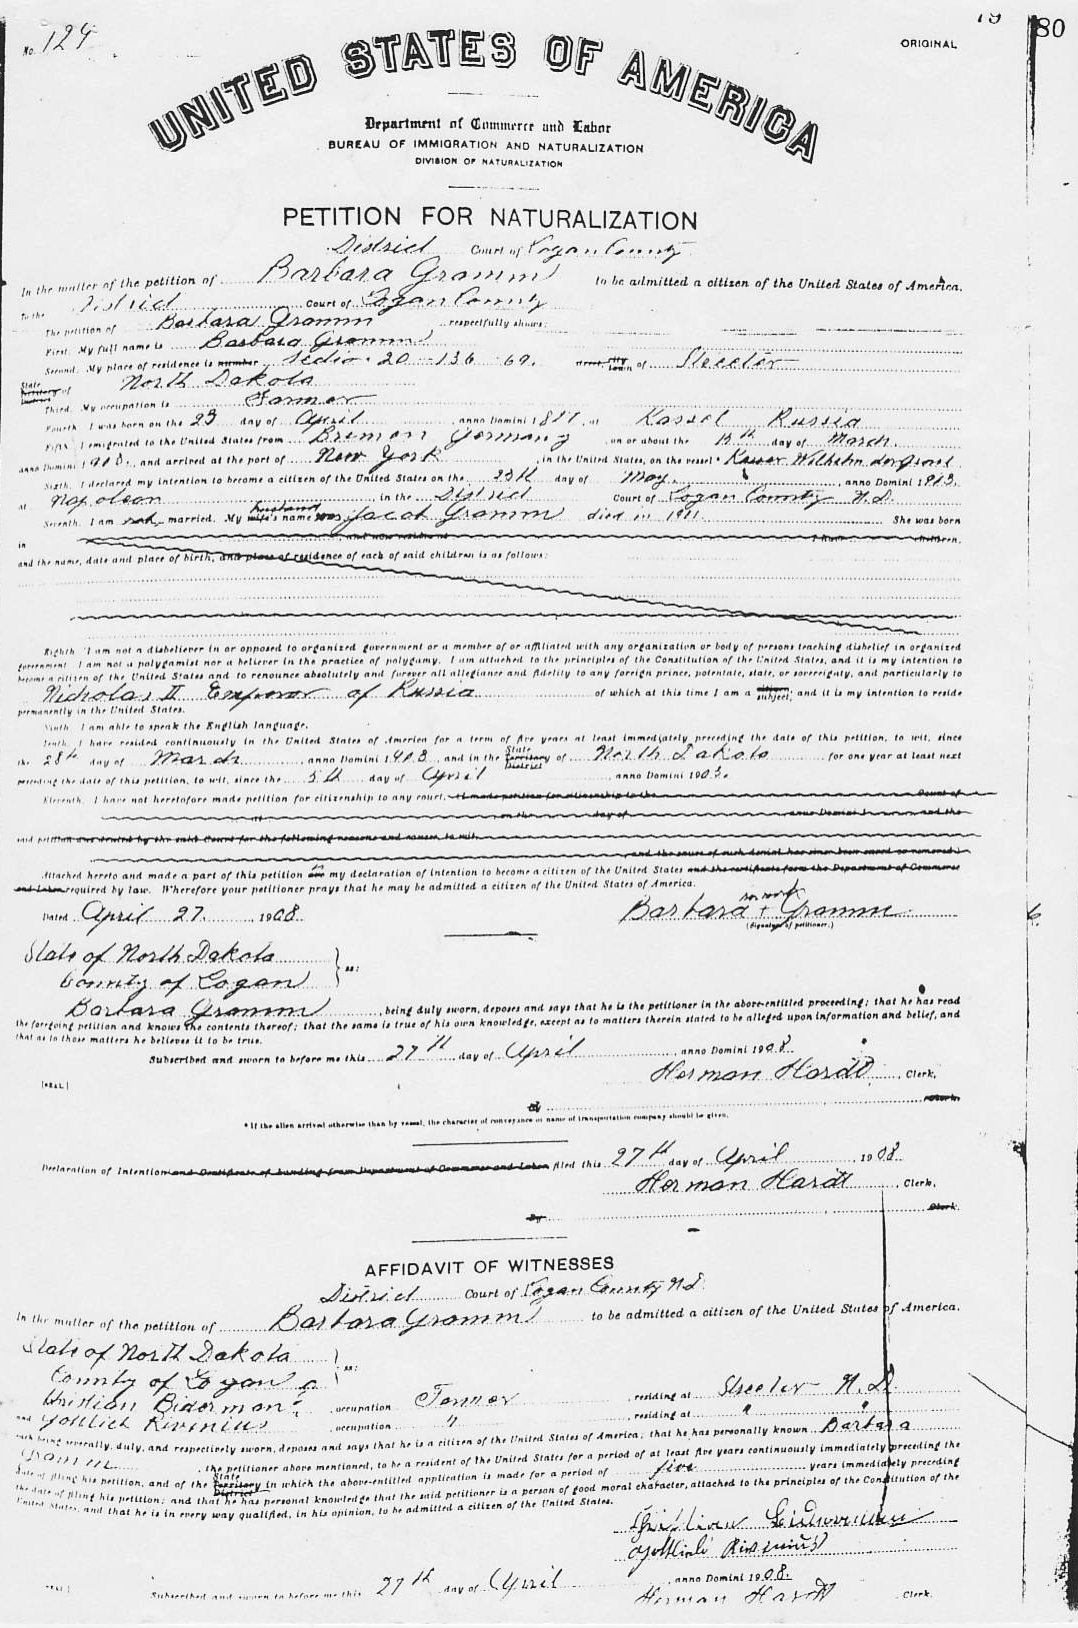 No. 124
19
80
ORIGINAL
UNITED STATES OF AMERICA
Department of Commerce and Labor
BUREAU OF IMMIGRATION AND NATURALIZATION
DIVISION OF NATURALIZATION
PETITION FOR NATURALIZATION
District Court of Logan County
In the matter of the petition of Barbara Gramm to be admitted a citizen of the United States of America.
To the District Court of Logan County
The petition of Barbara Gramm respectfully shows:
First. My full name is Barbara Gramm
Second. My place of residence is number Section 20 - 136 - 69. city town of Streeter
State Territory District of North Dakota
Third. My occupation is Farmer
Fourth. I was born on the 23 day of April anno Domini 18 at Kassel Russia
Fifth. I emigrated to the United States from Bremen Germany on or about the 15th day of March
anno Domini 1903, and arrived at the port of New York, in the United States, on the vessel* Kaiser Wilhelm der Grosse
Sixth. I declared my intention to become a citizen of the United States on the 25th day of May, anno Domini 1903,
at Napoleon in the District Court of Logan County N.D.
Seventh. I am not married. My wife's husband name was Jacob Gramm died in 1901. She was born
in and now resides at I have children,
and the name, date and place of birth, and place of residence of each of said children is as follows:
Eighth. I am not a disbeliever in or opposed to organized government or a member of or affiliated with any organization or body of persons teaching disbelief in organized
government. I am not a polygamist nor a believer in the practice of polygamy. I am attached to the principles of the Constitution of the United States, and it is my intention to
become a citizen of the United States and to renounce absolutely and forever all allegiance and fidelity to any foreign prince, potentate, state, or sovereignty, and particularly to
Nicholas II Emperor of Russia of which at this time I am a citizen subject; and it is my intention to reside
permanently in the United States.
Ninth. I am able to speak the English language.
Tenth. I have resided continuously in the United States of America for a term of five years at least immediately preceding the date of this petition, to wit, since
the 28th day of March, anno Domini 1903, and in the State Territory District of North Dakota for one year at least next
preceding the date of this petition, to wit, since the 5th day of April, anno Domini 1903.
Eleventh. I have not heretofore made petition for citizenship to any court. I made petition for citizenship to the Court of
at on the day of anno Domini 1 , and the
said petition was denied by the said Court for the following reasons and causes, to wit,
and the cause of such denial has since been cured or removed.
Attached hereto and made a part of this petition are is my declaration of intention to become a citizen of the United States and the certificate from the Department of Commerce
and Labor required by law. Wherefore your petitioner prays that he may be admitted a citizen of the United States of America.
Dated April 27, 1908 Barbara + Gramm
(Signature of petitioner.)
State of North Dakota
County of Logan ss:
Barbara Gramm, being duly sworn, deposes and says that he is the petitioner in the above-entitled proceeding; that he has read
the foregoing petition and knows the contents thereof; that the same is true of his own knowledge, except as to matters therein stated to be alleged upon information and belief, and
that as to those matters he believes it to be true.
Subscribed and sworn to before me this 27th day of April, anno Domini 1908.
[SEAL] Herman Hardt, Clerk.
Clerk.
* If the alien arrived otherwise than by vessel, the character of conveyance or name of transportation company should be given.
Declaration of Intention and Certificate of Landing from Department of Commerce and Labor filed this 27th day of April, 1908
Herman Hardt, Clerk.
By Clerk.
AFFIDAVIT OF WITNESSES
District Court of Logan County N.D.
In the matter of the petition of Barbara Gramm to be admitted a citizen of the United States of America.
State of North Dakota
County of Logan ss:
Kristian Biderman, occupation Farmer, residing at Streeter N.D.
and Gottlieb Rivinius, occupation ", residing at " "
each being severally, duly, and respectively sworn, deposes and says that he is a citizen of the United States of America; that he has personally known Barbara
Gramm, the petitioner above mentioned, to be a resident of the United States for a period of at least five years continuously immediately preceding the
date of filing his petition, and of the State Territory District in which the above-entitled application is made for a period of five years immediately preceding
the date of filing his petition; and that he has personal knowledge that the said petitioner is a person of good moral character, attached to the principles of the Constitution of the
United States, and that he is in every way qualified, in his opinion, to be admitted a citizen of the United States.
Gottlieb Rivinius
Subscribed and sworn to before me this 27th day of April, anno Domini 1908.
[SEAL] Herman Hardt Clerk.